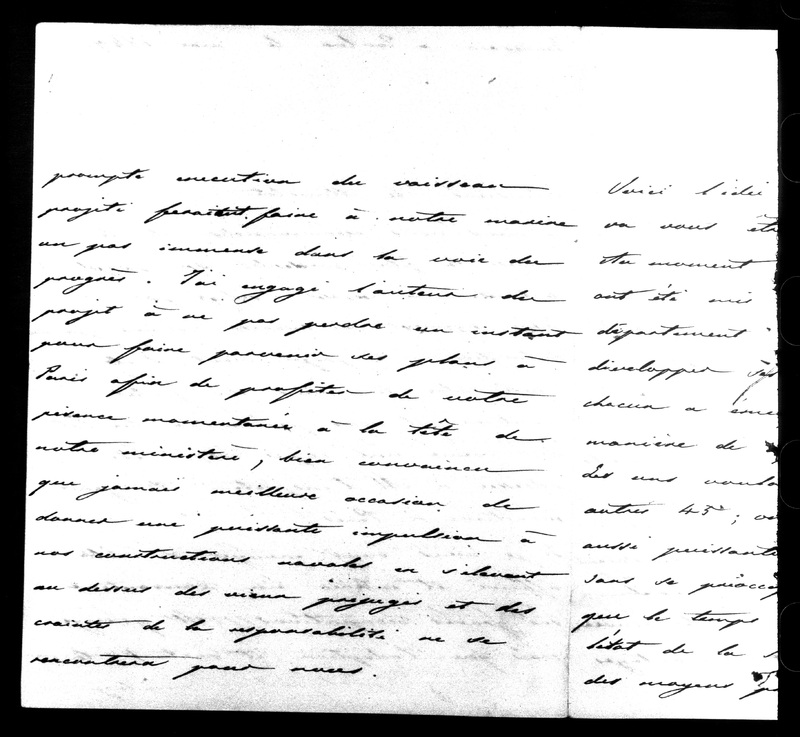 prompte execution du vaisseau
projeté feraient faire à notre marine
un pas immense dans la voie du
progrès. J'ai engagé l'auteur du
projet à ne pas perdre un instant
pour faire parvenir ses plans à
Paris afin de profiter de votre
présence momentanée à la tête de
notre ministère, bien convaincu
que jamais meilleure occasion de
donner une puissante impulsion à
nos constructions navales en s'élevant
au dessus des vieux préjugés et des
craintes de la responsabilité ne se
rencontrera pour nous.
Voici l'idée
va vous êt
du moment
ont été mis
département
développer ses
chacun a éme
manière de
Les uns voula
autres 45°;
aussi puissante
sans se préoccup
que le temps
l'état de la
des moyens